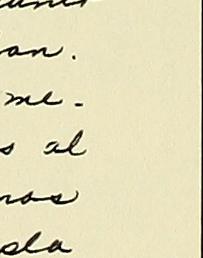 an.
me-
s al
nos
sla